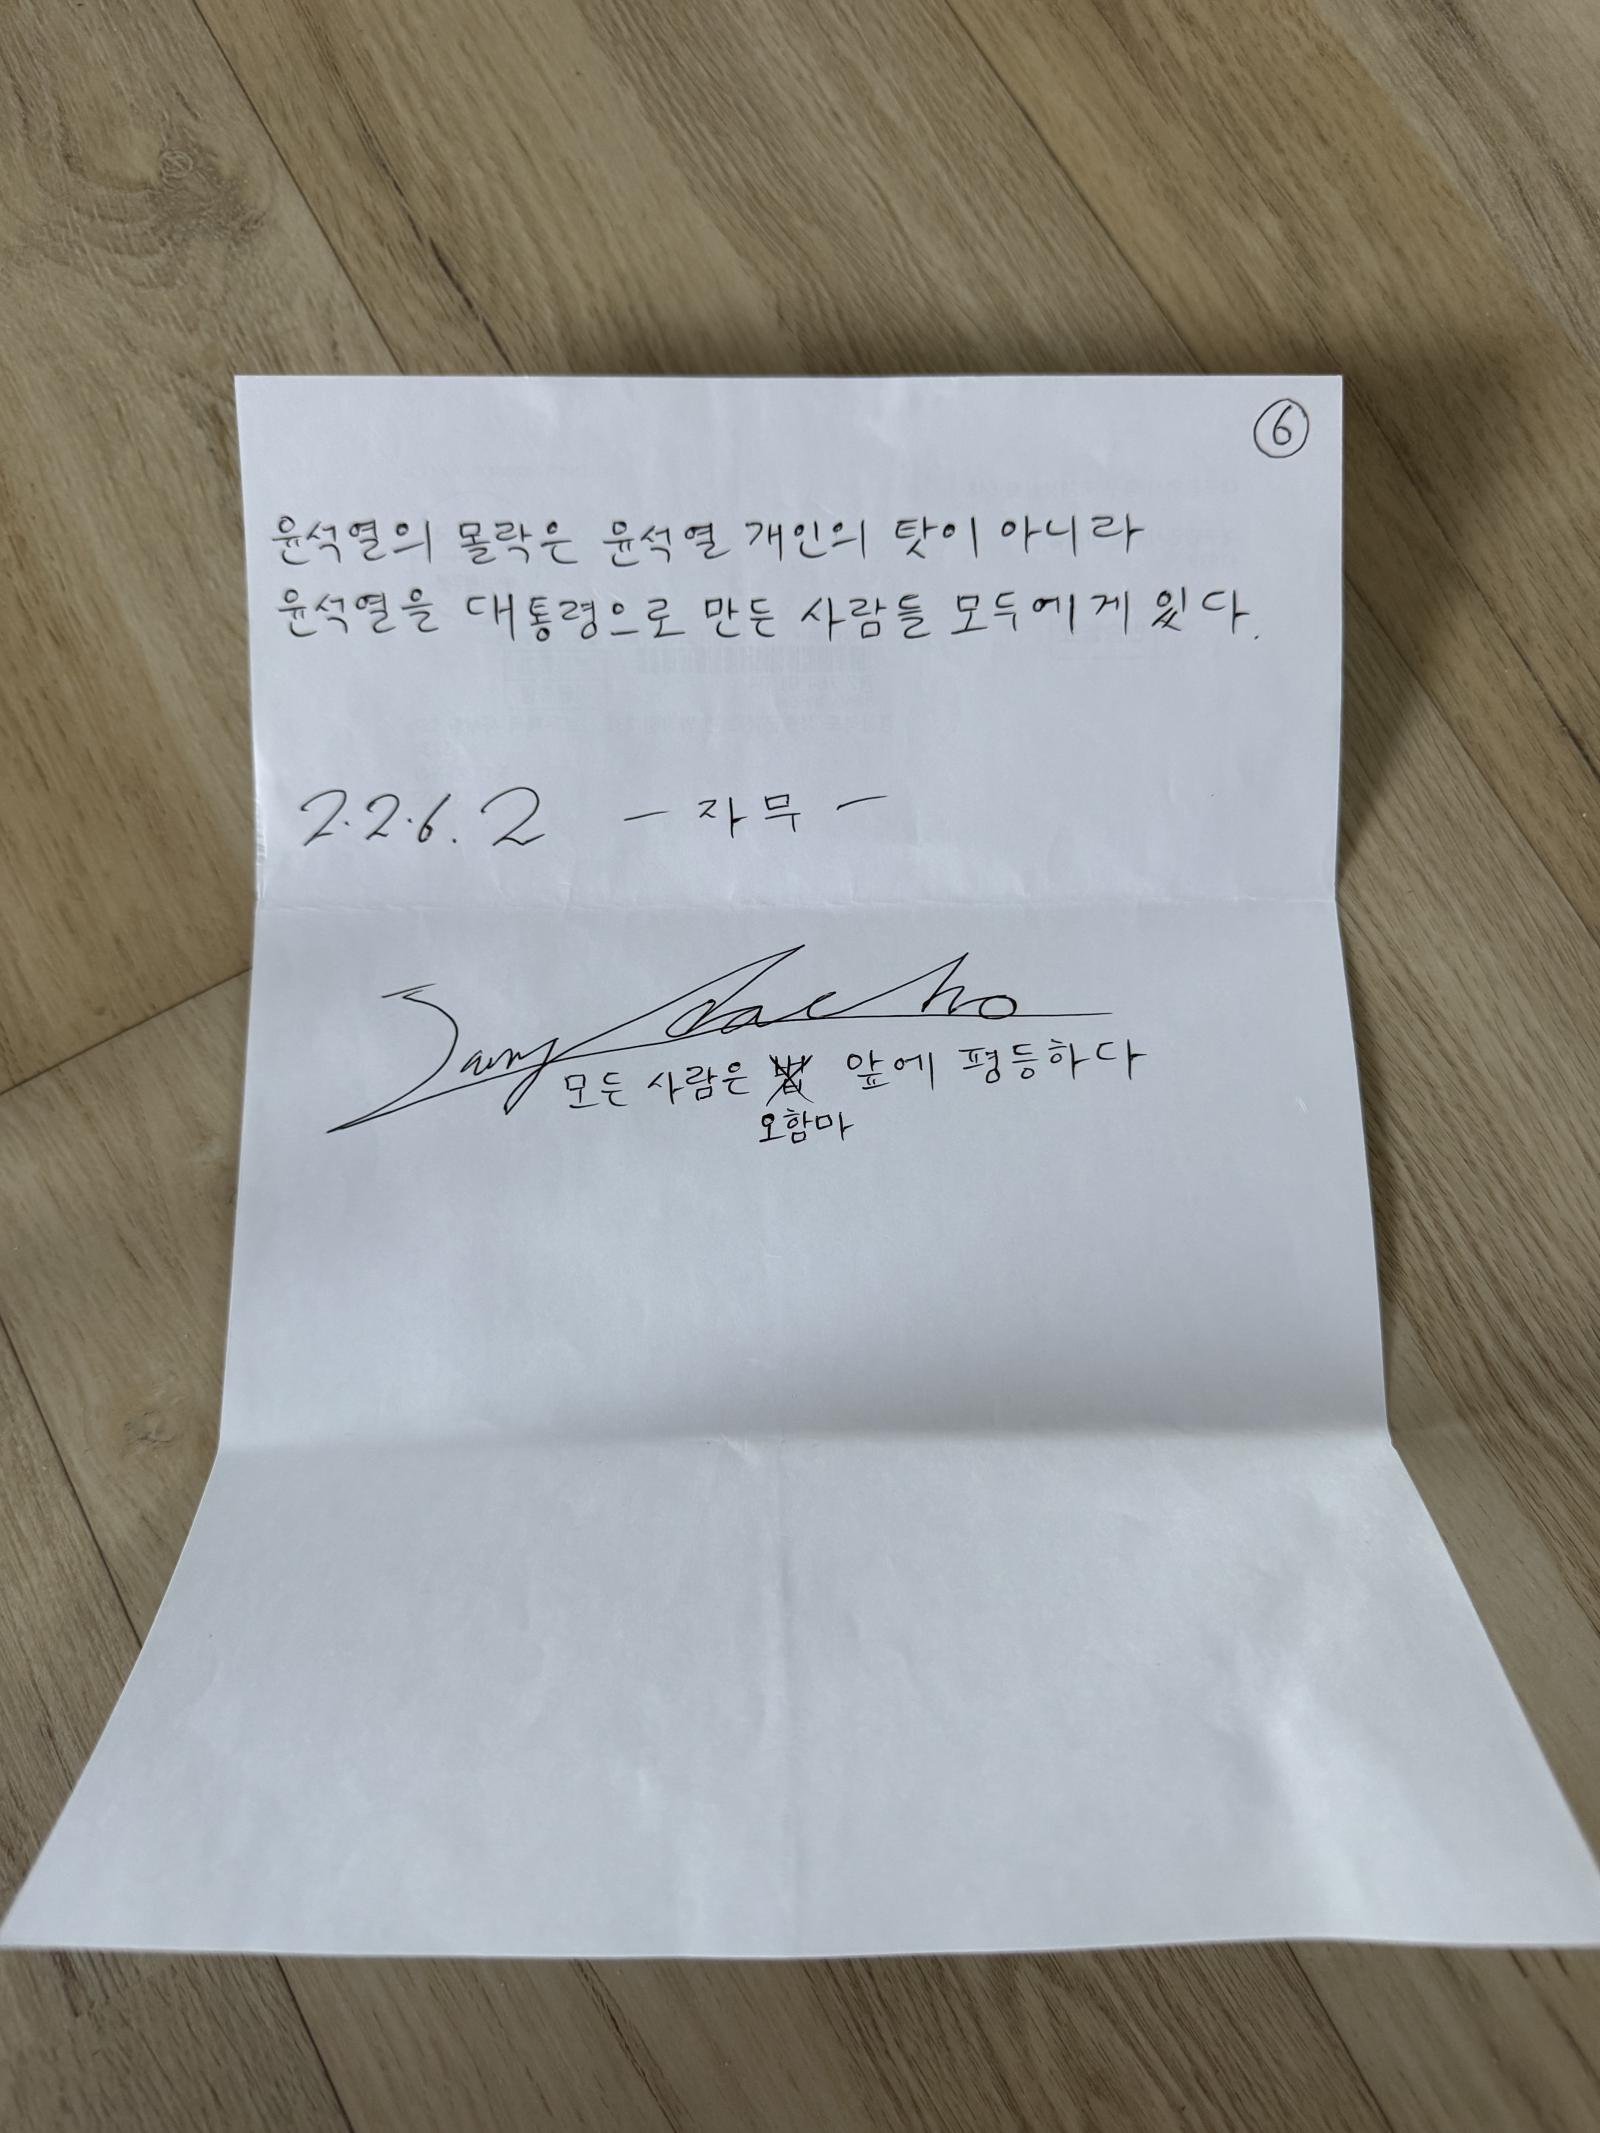 ⑥
윤석열의 몰락은 윤석열 개인의 탓이 아니라
윤석열을 대통령으로 만든 사람들 모두에게 있다.
2.2.6.2 - 자무 -
Jang dae ho
모든 사람은 법 앞에 평등하다
오함마